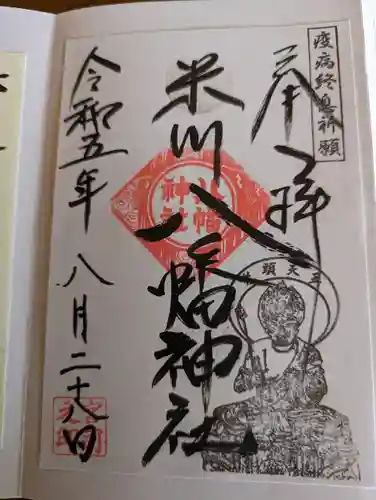 疫病終息祈願
奉拝
牛頭天王
米川八幡神社
八幡
神社
令和五年八月二十八日